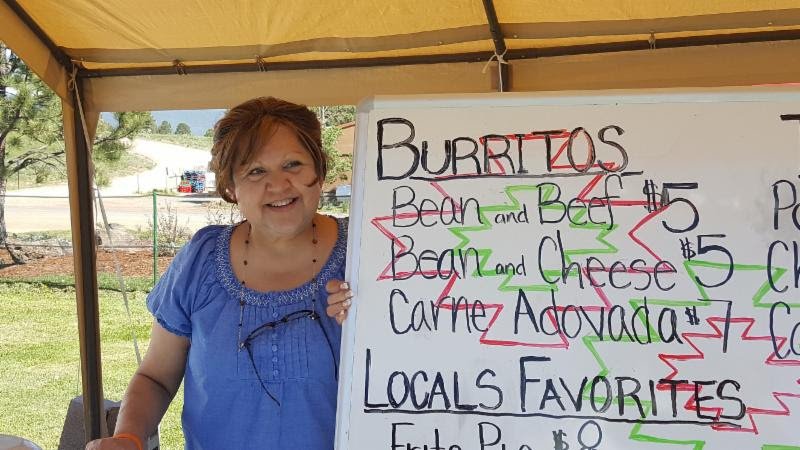 BURRITOS
Bean and Beef $5
Bean and Cheese $5
Carne Adovada $7
LOCALS FAVORITES
Frito Pie $8